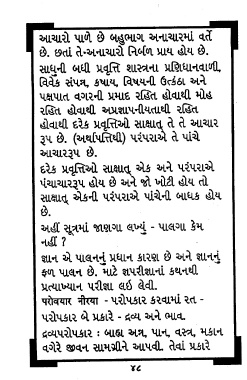 આચારો પાળે છે બહુભાગ અનાચારમાં વર્તે
છે. છતાં તે-અનાચારો નિર્બળ પ્રાય હોય છે.
સાધુની બધી પ્રવૃત્તિ શાસ્ત્રના પ્રણિધાનવાળી,
વિવેક સંપન્ન, કષાય, વિષયની ઉત્કંઠા અને
પક્ષપાત વગરની પ્રમાદ રહિત હોવાથી મોહ
રહિત હોવાથી અપ્રજ્ઞાપનીયતાથી રહિત
હોવાથી દરેક પ્રવૃત્તિઓ સાક્ષાત્ તે તે આચાર
રૂપ છે. (અર્થાપત્તિથી) પરંપરાએ તે પાંચે
આચારરૂપ છે.
દરેક પ્રવૃત્તિઓ સાક્ષાત્ એક અને પરંપરાએ
પંચાચારરૂપ હોય છે અને જો ખોટી હોય તો
સાક્ષાત્ એકની પરંપરાએ પાંચેની બાધક હોય
છે.
અહીં સૂત્રમાં જાણગા લખ્યું - પાલગા કેમ
નહીં ?
જ્ઞાન એ પાલનનું પ્રધાન કારણ છે અને જ્ઞાનનું
ફળ પાલન છે. માટે જ્ઞપરીજ્ઞાનાં કથનથી
પ્રત્યાખ્યાન પરીજ્ઞા લઇ લેવી.
परोवयार नीरया - પરોપકાર કરવામાં રત -
પરોપકાર બે પ્રકારે - દ્રવ્ય અને ભાવ.
દ્રવ્યપરોપકાર : બાહ્ય અન્ન, પાન, વસ્ત્ર, મકાન
વગેરે જીવન સામગ્રીને આપવી. તેવાં પ્રકારે
૪૮